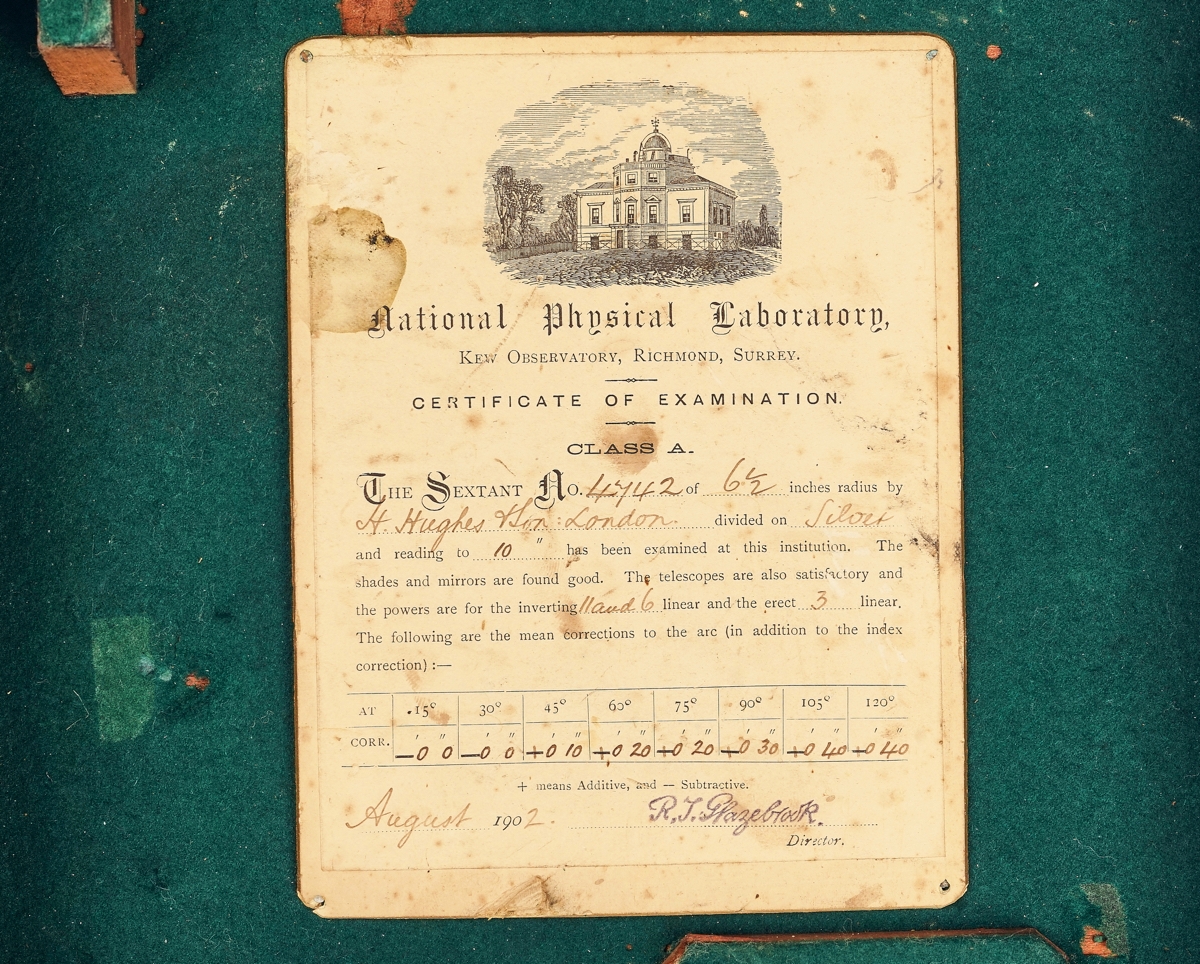 National Physical Laboratory,
KEW OBSERVATORY, RICHMOND, SURREY.
CERTIFICATE OF EXAMINATION.
CLASS A.
THE SEXTANT NO. 4742 of 6½ inches radius by
H. Hughes & Son: London. divided on Silver
and reading to 10" has been examined at this institution. The
shades and mirrors are found good. The telescopes are also satisfactory and
the powers are for the inverting 11 and 6 linear and the erect 3 linear.
The following are the mean corrections to the arc (in addition to the index
correction) :—
AT 15° 30° 45° 60° 75° 90° 105° 120°
CORR. —0' 0" —0' 0" +0' 10" +0' 20" +0' 20" +0' 30" +0' 40" +0' 40"
+ means Additive, and — Subtractive.
August 1902. R. T. Glazebrook.
Director.